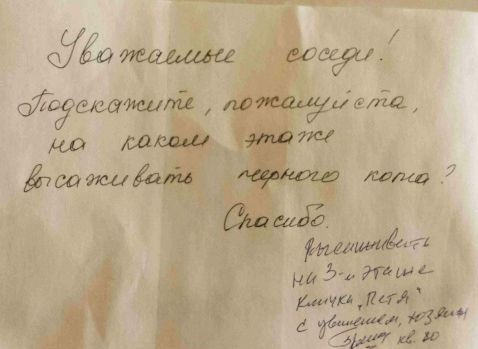 Уважаемые соседи!
Подскажите, пожалуйста,
на каком этаже
высаживать черного кота?
Спасибо.
Высаживать
на 3-м этаже
кличка "Петя"
с уважением, хозяин
кв. 20